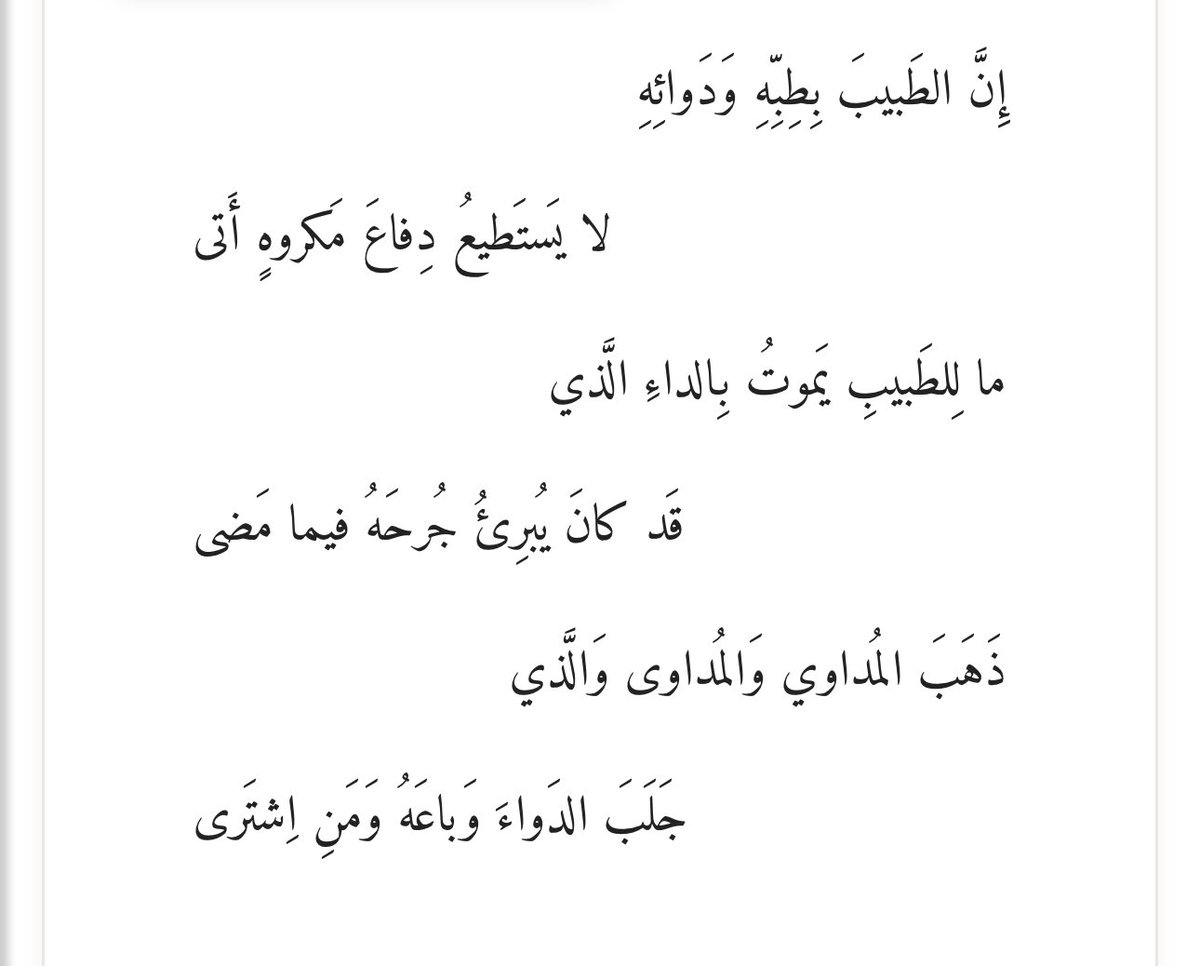 إِنَّ الطَبيبَ بِطِبِّهِ وَدَوائِهِ
لا يَستَطيعُ دِفاعَ مَكروهٍ أَتى
ما لِلطَبيبِ يَموتُ بِالداءِ الَّذي
قَد كانَ يُبرِئُ جُرحَهُ فيما مَضى
ذَهَبَ المُداوي وَالمُداوى وَالَّذي
جَلَبَ الدَواءَ وَباعَهُ وَمَنِ اِشتَرى